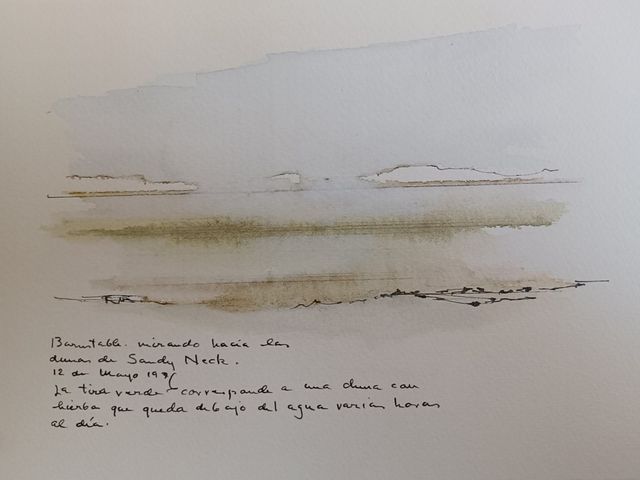 Barnstable. mirando hacia las
dunas de Sandy Neck.
12 de Mayo
La tira verde corresponde a una duna con
hierba que queda debajo del agua varias horas
al día.